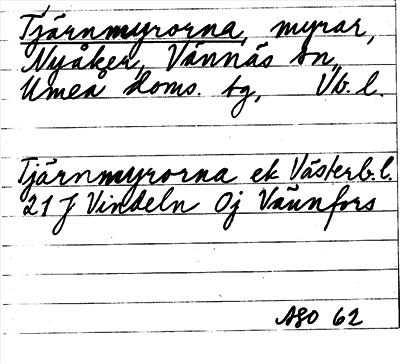 Tjärnmyrorna, myrar,
Nyåker, Vännäs sn,
Umeå doms. tg, Vb. l.
Tjärnmyrorna ek Västerb. l.
21 J Vindeln 0j Vännfors
ASO 62